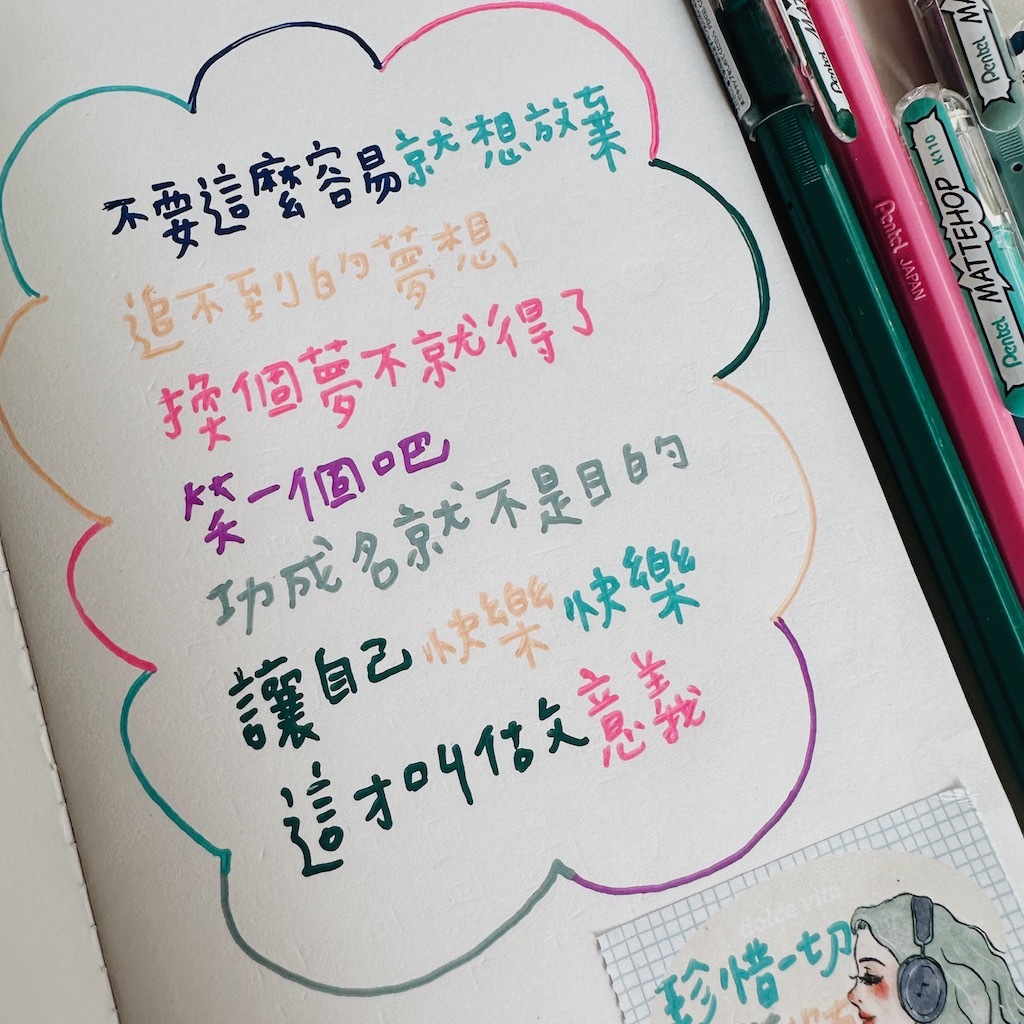 不要這麼容易就想放棄
追不到的夢想
換個夢不就得了
笑一個吧
功成名就不是目的
讓自己快樂快樂
這才叫做意義
dolce vita
珍惜一切
Pentel JAPAN
Pentel MATTEHOP K110
Pentel